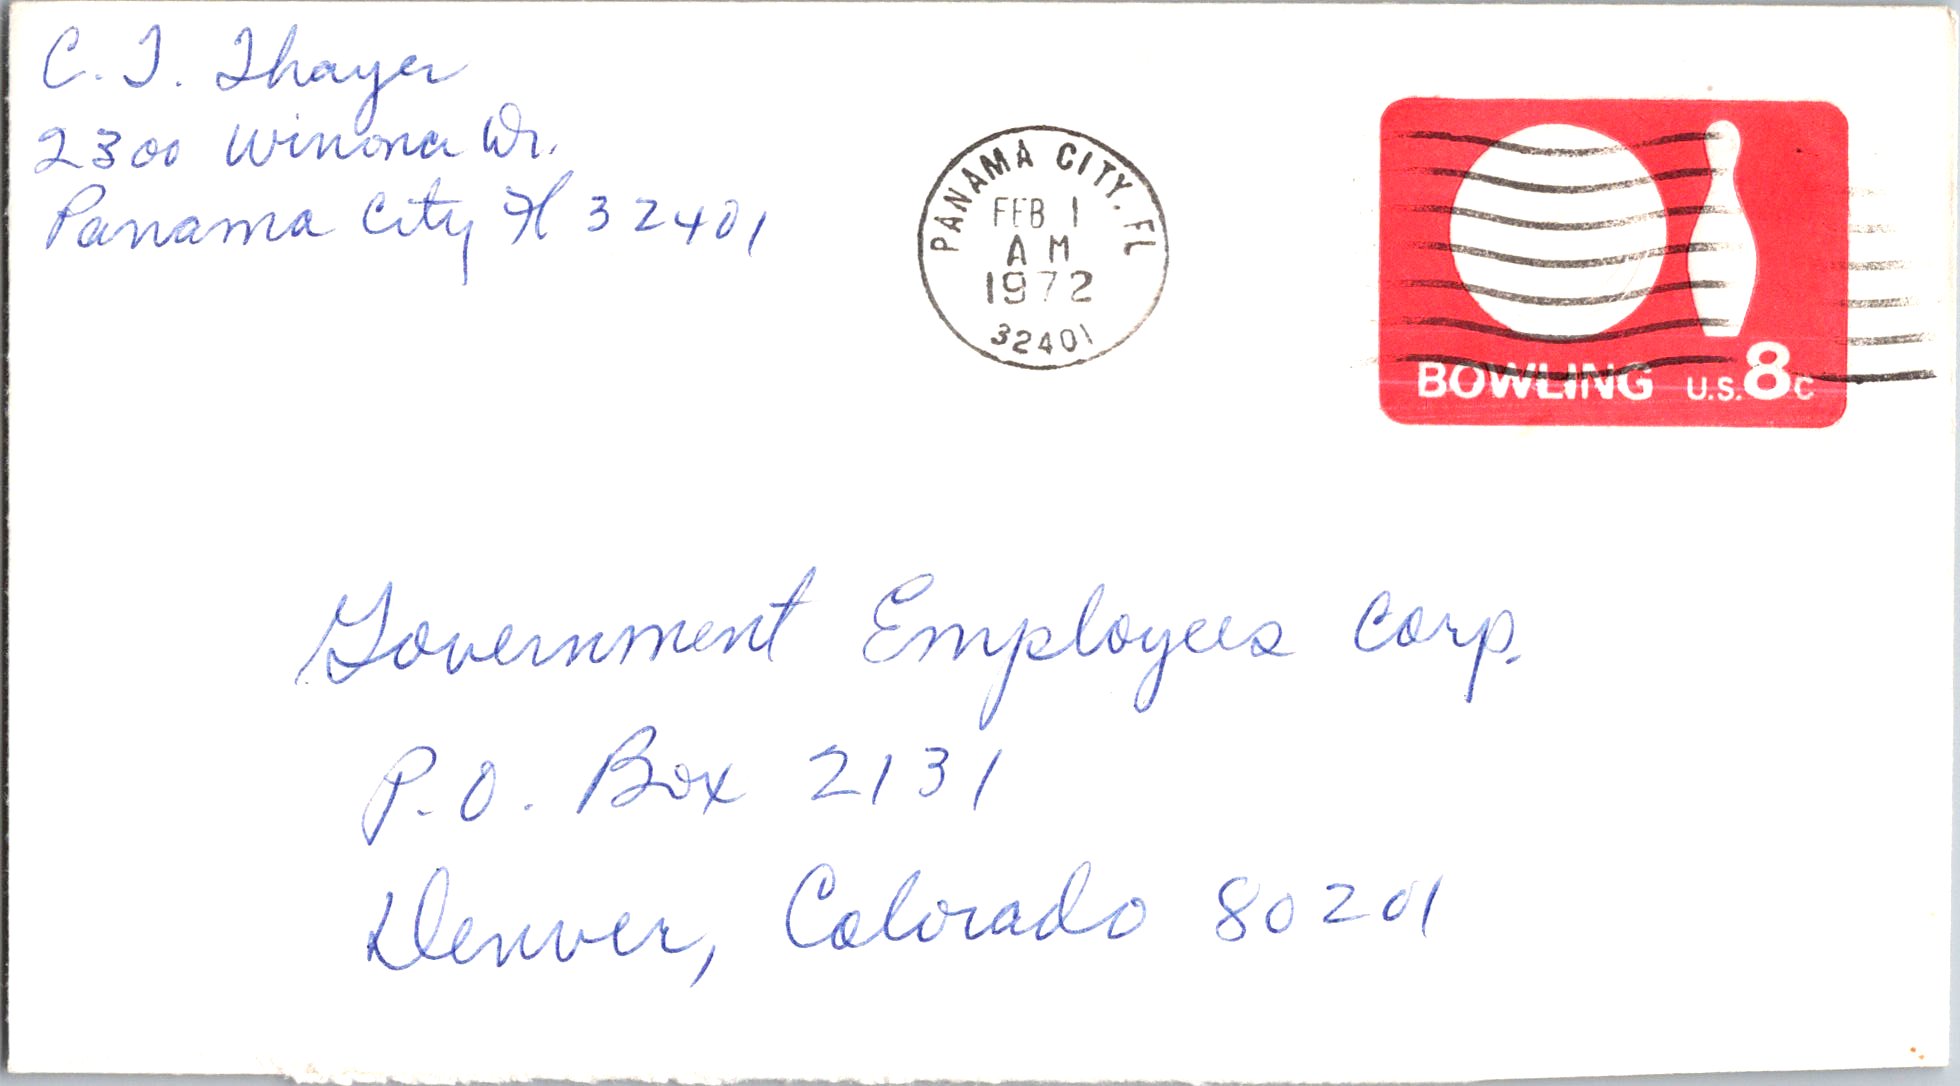 C. T. Thayer
2300 Winona Dr.
Panama City Fl 32401
PANAMA CITY, FL
FEB 1
AM
1972
32401
BOWLING U.S. 8c
Government Employees Corp.
P.O. Box 2131
Denver, Colorado 80201